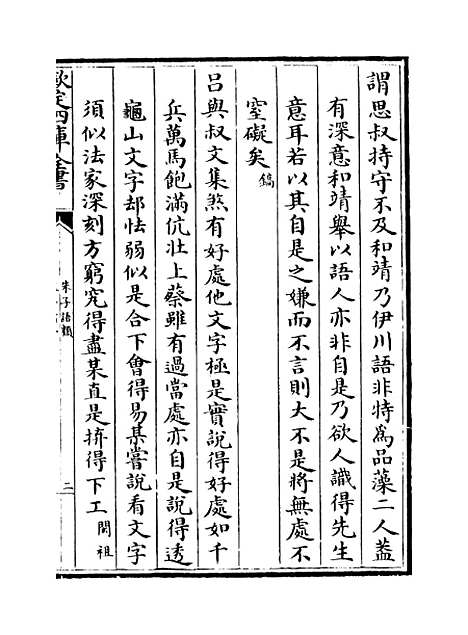 謂思叔持守不及和靖乃伊川語非特為品藻二人葢
有深意和靖舉以語人亦非自是乃欲人識得先生
意耳若以其自是之嫌而不言則大不是將無處不
窒礙矣 鎬
吕與叔文集煞有好處他文字極是實說得好處如千
兵萬馬飽滿伉壮上蔡雖有過當處亦自是說得透
龜山文字却怯弱似是合下會得易某嘗說看文字
須似法家深刻方窮究得盡某直是拚得下工 閎祖
欽定四庫全書
朱子語類
二